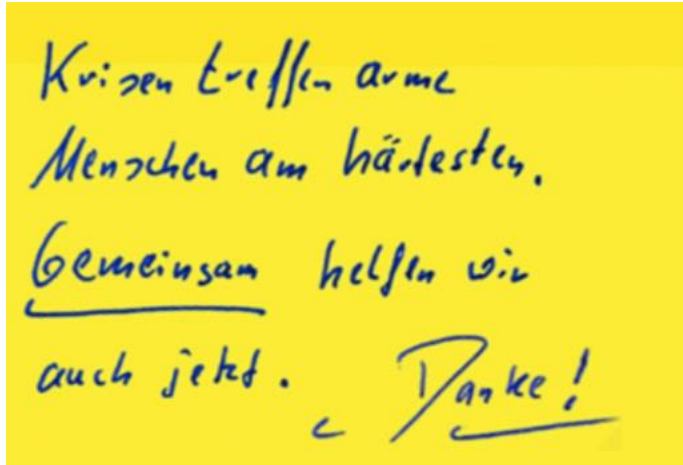 Krisen treffen arme
Menschen am härtesten.
Gemeinsam helfen wir
auch jetzt. Danke!